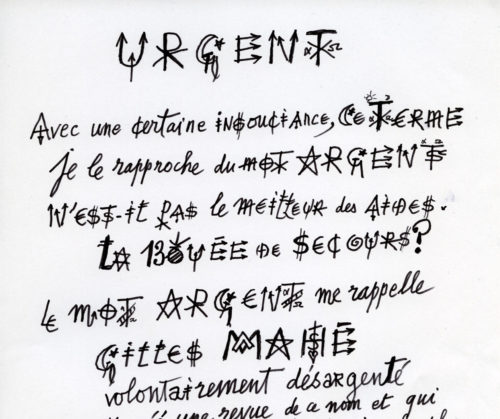 URGENT
Avec une certaine insouciance, ce terme
je le rapproche du mot ARGENT
N'est-il pas le meilleur des aides.
La bouée de secours?
Le mot ARGENT me rappelle
Gilles MAHÉ
volontairement désargenté
une revue de ce nom et qui